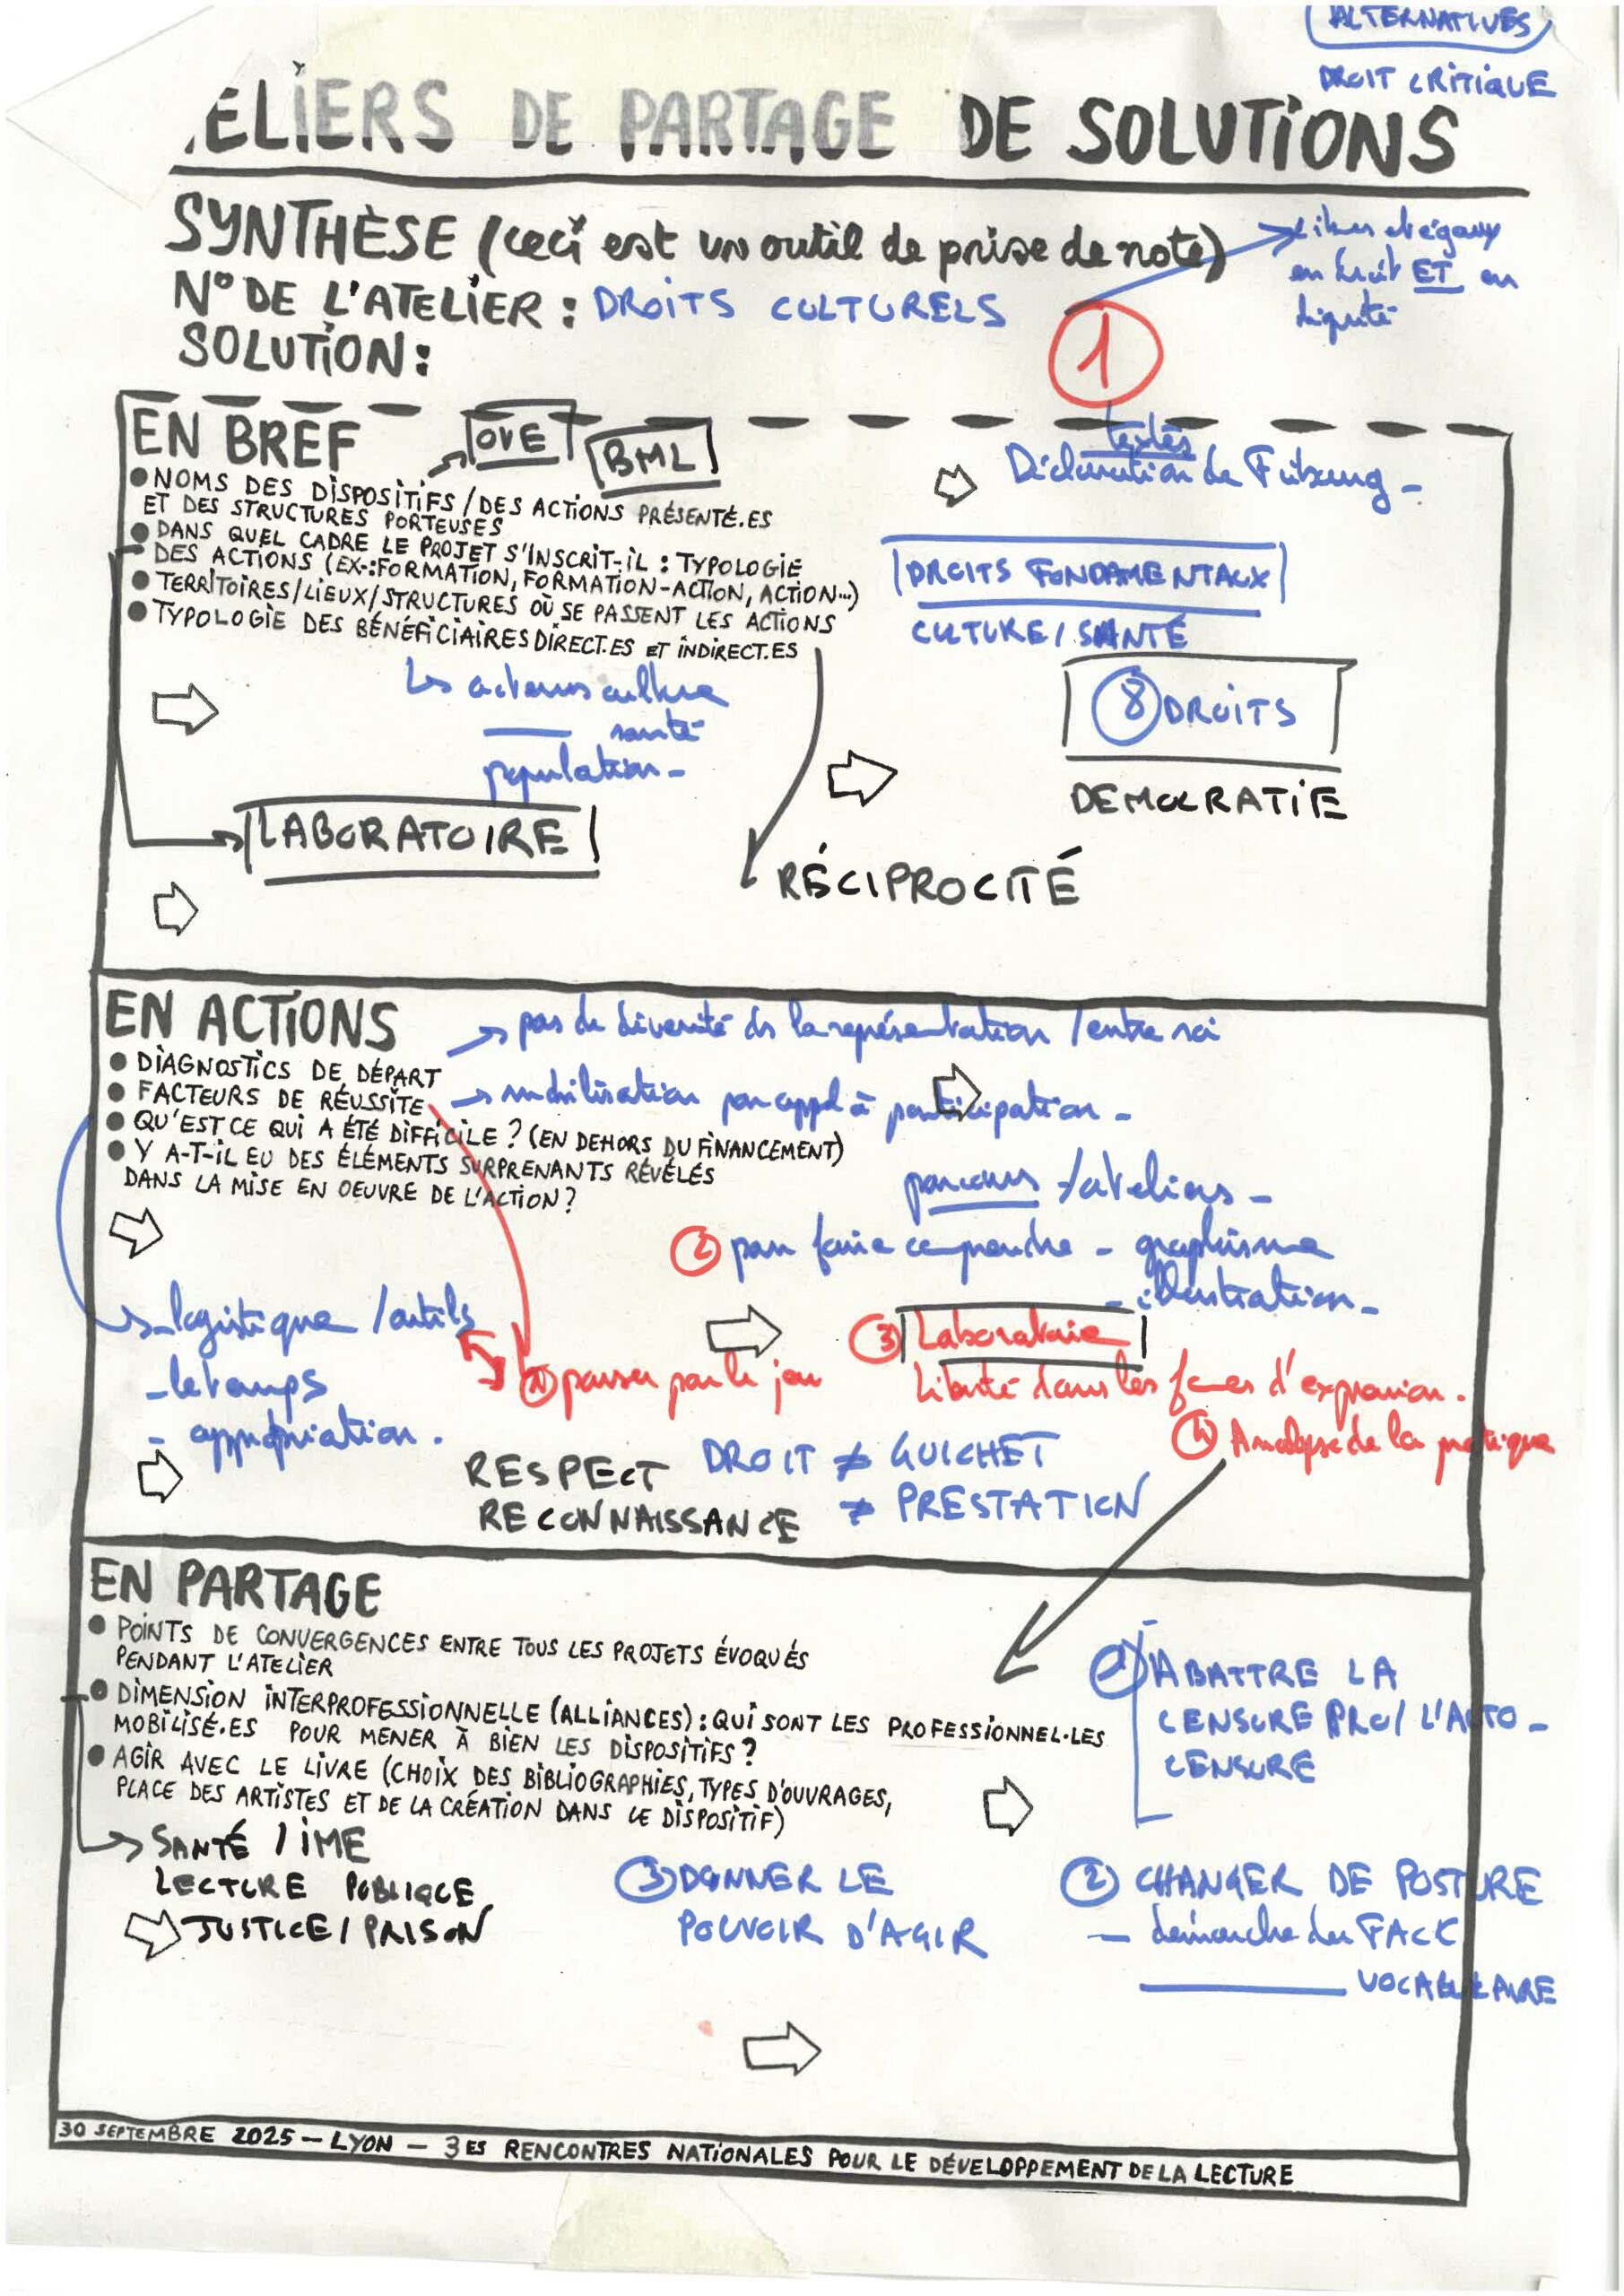 ALTERNATIVES
DROIT CRITIQUE
ELIERS DE PARTAGE DE SOLUTIONS
SYNTHÈSE (ceci est un outil de prise de note)
Libres et égaux
en droit ET en
dignité
N° DE L'ATELIER : DROITS CULTURELS
SOLUTION :
1
EN BREF
OVE
BML
● NOMS DES DISPOSITIFS / DES ACTIONS PRÉSENTÉ.ES
ET DES STRUCTURES PORTEUSES
● DANS QUEL CADRE LE PROJET S'INSCRIT-IL : TYPOLOGIE
DES ACTIONS (EX-:FORMATION, FORMATION-ACTION, ACTION...)
● TERRITOIRES/LIEUX/STRUCTURES OÙ SE PASSENT LES ACTIONS
● TYPOLOGIE DES BÉNÉFICIAIRES DIRECT.ES ET INDIRECT.ES
textes
Déclaration de Fribourg -
DROITS FONDAMENTAUX
CULTURE / SANTÉ
8 DROITS
DEMOCRATIE
Les acteurs culture
santé
population -
LABORATOIRE
RÉCIPROCITÉ
EN ACTIONS
→ pas de diversité ds la représentation / entre soi
● DIAGNOSTICS DE DÉPART
● FACTEURS DE RÉUSSITE
→ mobilisation par appel à participation -
● QU'EST CE QUI A ÉTÉ DIFFICILE ? (EN DEHORS DU FINANCEMENT)
● Y A-T-IL EU DES ÉLÉMENTS SURPRENANTS RÉVÉLÉS
DANS LA MISE EN OEUVRE DE L'ACTION ?
parcours / ateliers -
2 pour faire comprendre - graphisme
- illustration -
- logistique / outils
- le temps
- appropriation .
1 passer par le jeu
3 Laboratoire
Liberté dans les formes d'expression .
4 Analyse de la pratique
RESPECT
RECONNAISSANCE
DROIT ≠ GUICHET
≠ PRESTATION
EN PARTAGE
● POINTS DE CONVERGENCES ENTRE TOUS LES PROJETS ÉVOQUÉS
PENDANT L'ATELIER
● DIMENSION INTERPROFESSIONNELLE (ALLIANCES) : QUI SONT LES PROFESSIONNEL·LES
MOBILISÉ.ES POUR MENER À BIEN LES DISPOSITIFS ?
● AGIR AVEC LE LIVRE (CHOIX DES BIBLIOGRAPHIES, TYPES D'OUVRAGES,
PLACE DES ARTISTES ET DE LA CRÉATION DANS LE DISPOSITIF)
1 ABATTRE LA
CENSURE PRO / L'AUTO-
CENSURE
→ SANTÉ / IME
LECTURE PUBLIQUE
JUSTICE / PRISON
3 DONNER LE
POUVOIR D'AGIR
2 CHANGER DE POSTURE
- démarche du FACK
VOCABULAIRE
30 SEPTEMBRE 2025 – LYON – 3ES RENCONTRES NATIONALES POUR LE DÉVELOPPEMENT DE LA LECTURE